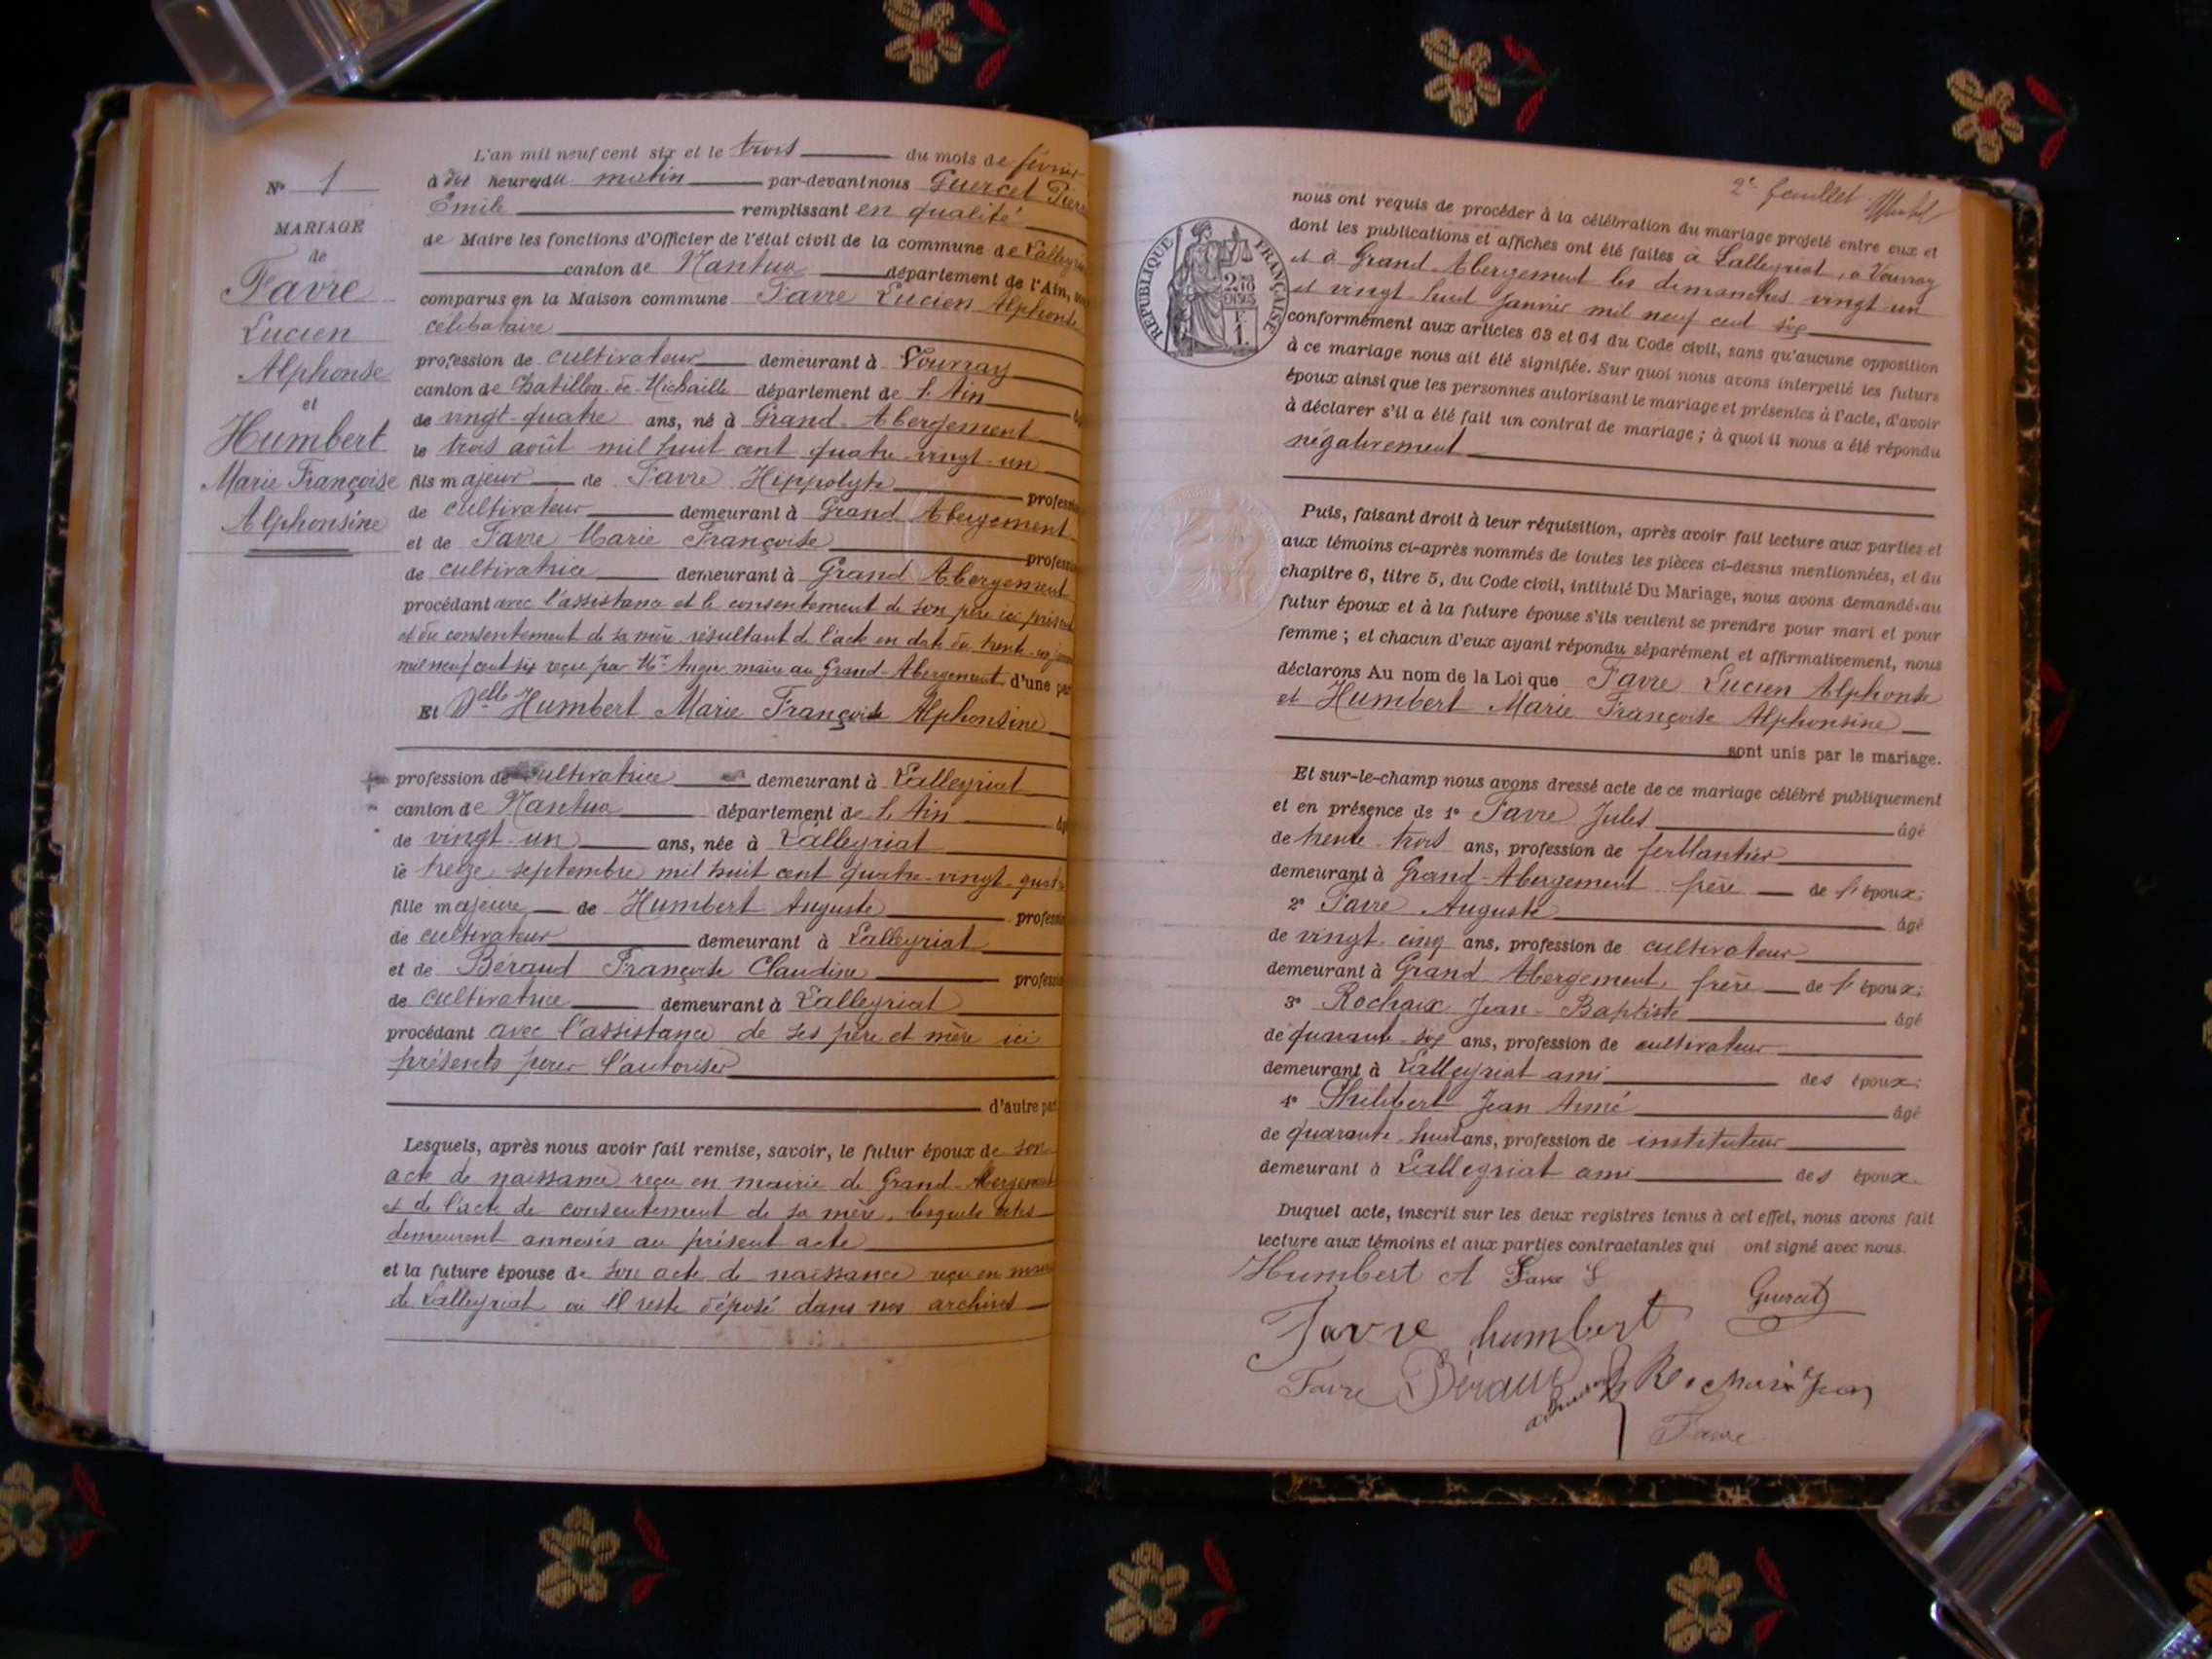 L'an mil neuf cent six et le trois du mois de février
N° 1
à dix heures du matin par-devant nous Guercet Pierre
Emile remplissant en qualité
MARIAGE
de
Favre
Lucien
Alphonse
et
Humbert
Marie Françoise
Alphonsine
de Maire les fonctions d'Officier de l'état civil de la commune de Lalleyriat
canton de Nantua département de l'Ain,
comparus en la Maison commune Favre Lucien Alphonse
célibataire
profession de cultivateur demeurant à Vouvray
canton de Chatillon-de-Michaille département de l'Ain
de vingt-quatre ans, né à Grand-Abergement
le trois août mil huit cent quatre-vingt-un
fils majeur de Favre Hippolyte profession
de cultivateur demeurant à Grand Abergement
et de Favre Marie Françoise profession
de cultivatrice demeurant à Grand Abergement
procédant avec l'assistance et le consentement de son père ici présent
et du consentement de sa mère résultant de l'acte en date du trente-un
mil neuf cent six reçu par Mr maire au Grand-Abergement d'une part
Et Delle Humbert Marie Françoise Alphonsine
profession de cultivatrice demeurant à Lalleyriat
canton de Nantua département de l'Ain
de vingt-un ans, née à Lalleyriat
le treize septembre mil huit cent quatre-vingt-quatre
fille majeure de Humbert Auguste profession
de cultivateur demeurant à Lalleyriat
et de Béraud Françoise Claudine profession
de cultivatrice demeurant à Lalleyriat
procédant avec l'assistance de ses père et mère ici
présents pour l'autoriser
d'autre part
Lesquels, après nous avoir fait remise, savoir, le futur époux de son
acte de naissance reçu en mairie de Grand-Abergement
et de l'acte de consentement de sa mère, lesquels actes
demeurent annexés au présent acte
et la future épouse de son acte de naissance reçu en mairie
de Lalleyriat où il reste déposé dans nos archives
2e feuillet
REPUBLIQUE FRANÇAISE
nous ont requis de procéder à la célébration du mariage projeté entre eux et
dont les publications et affiches ont été faites à Lalleyriat, à Vouvray
et à Grand-Abergement les dimanches vingt-un
et vingt-huit janvier mil neuf cent six
conformément aux articles 63 et 64 du Code civil, sans qu'aucune opposition
à ce mariage nous ait été signifiée. Sur quoi nous avons interpellé les futurs
époux ainsi que les personnes autorisant le mariage et présentes à l'acte, d'avoir
à déclarer s'il a été fait un contrat de mariage ; à quoi il nous a été répondu
négativement
Puis, faisant droit à leur réquisition, après avoir fait lecture aux parties et
aux témoins ci-après nommés de toutes les pièces ci-dessus mentionnées, et du
chapitre 6, titre 5, du Code civil, intitulé Du Mariage, nous avons demandé au
futur époux et à la future épouse s'ils veulent se prendre pour mari et pour
femme ; et chacun d'eux ayant répondu séparément et affirmativement, nous
déclarons Au nom de la Loi que Favre Lucien Alphonse
et Humbert Marie Françoise Alphonsine
sont unis par le mariage.
Et sur-le-champ nous avons dressé acte de ce mariage célébré publiquement
et en présence de 1° Favre Jules âgé
de trente-trois ans, profession de ferblantier
demeurant à Grand-Abergement frère de l'époux;
2° Favre Auguste âgé
de vingt-cinq ans, profession de cultivateur
demeurant à Grand Abergement, frère de l'époux;
3° Rochaix Jean-Baptiste âgé
de quarante-six ans, profession de cultivateur
demeurant à Lalleyriat ami des époux;
4° Philibert Jean Aimé âgé
de quarante-huit ans, profession de instituteur
demeurant à Lalleyriat ami des époux.
Duquel acte, inscrit sur les deux registres tenus à cet effet, nous avons fait
lecture aux témoins et aux parties contractantes qui ont signé avec nous.
Humbert A Favre L Guercet
Favre humbert
Favre Béraud Rochaix Jean
Favre